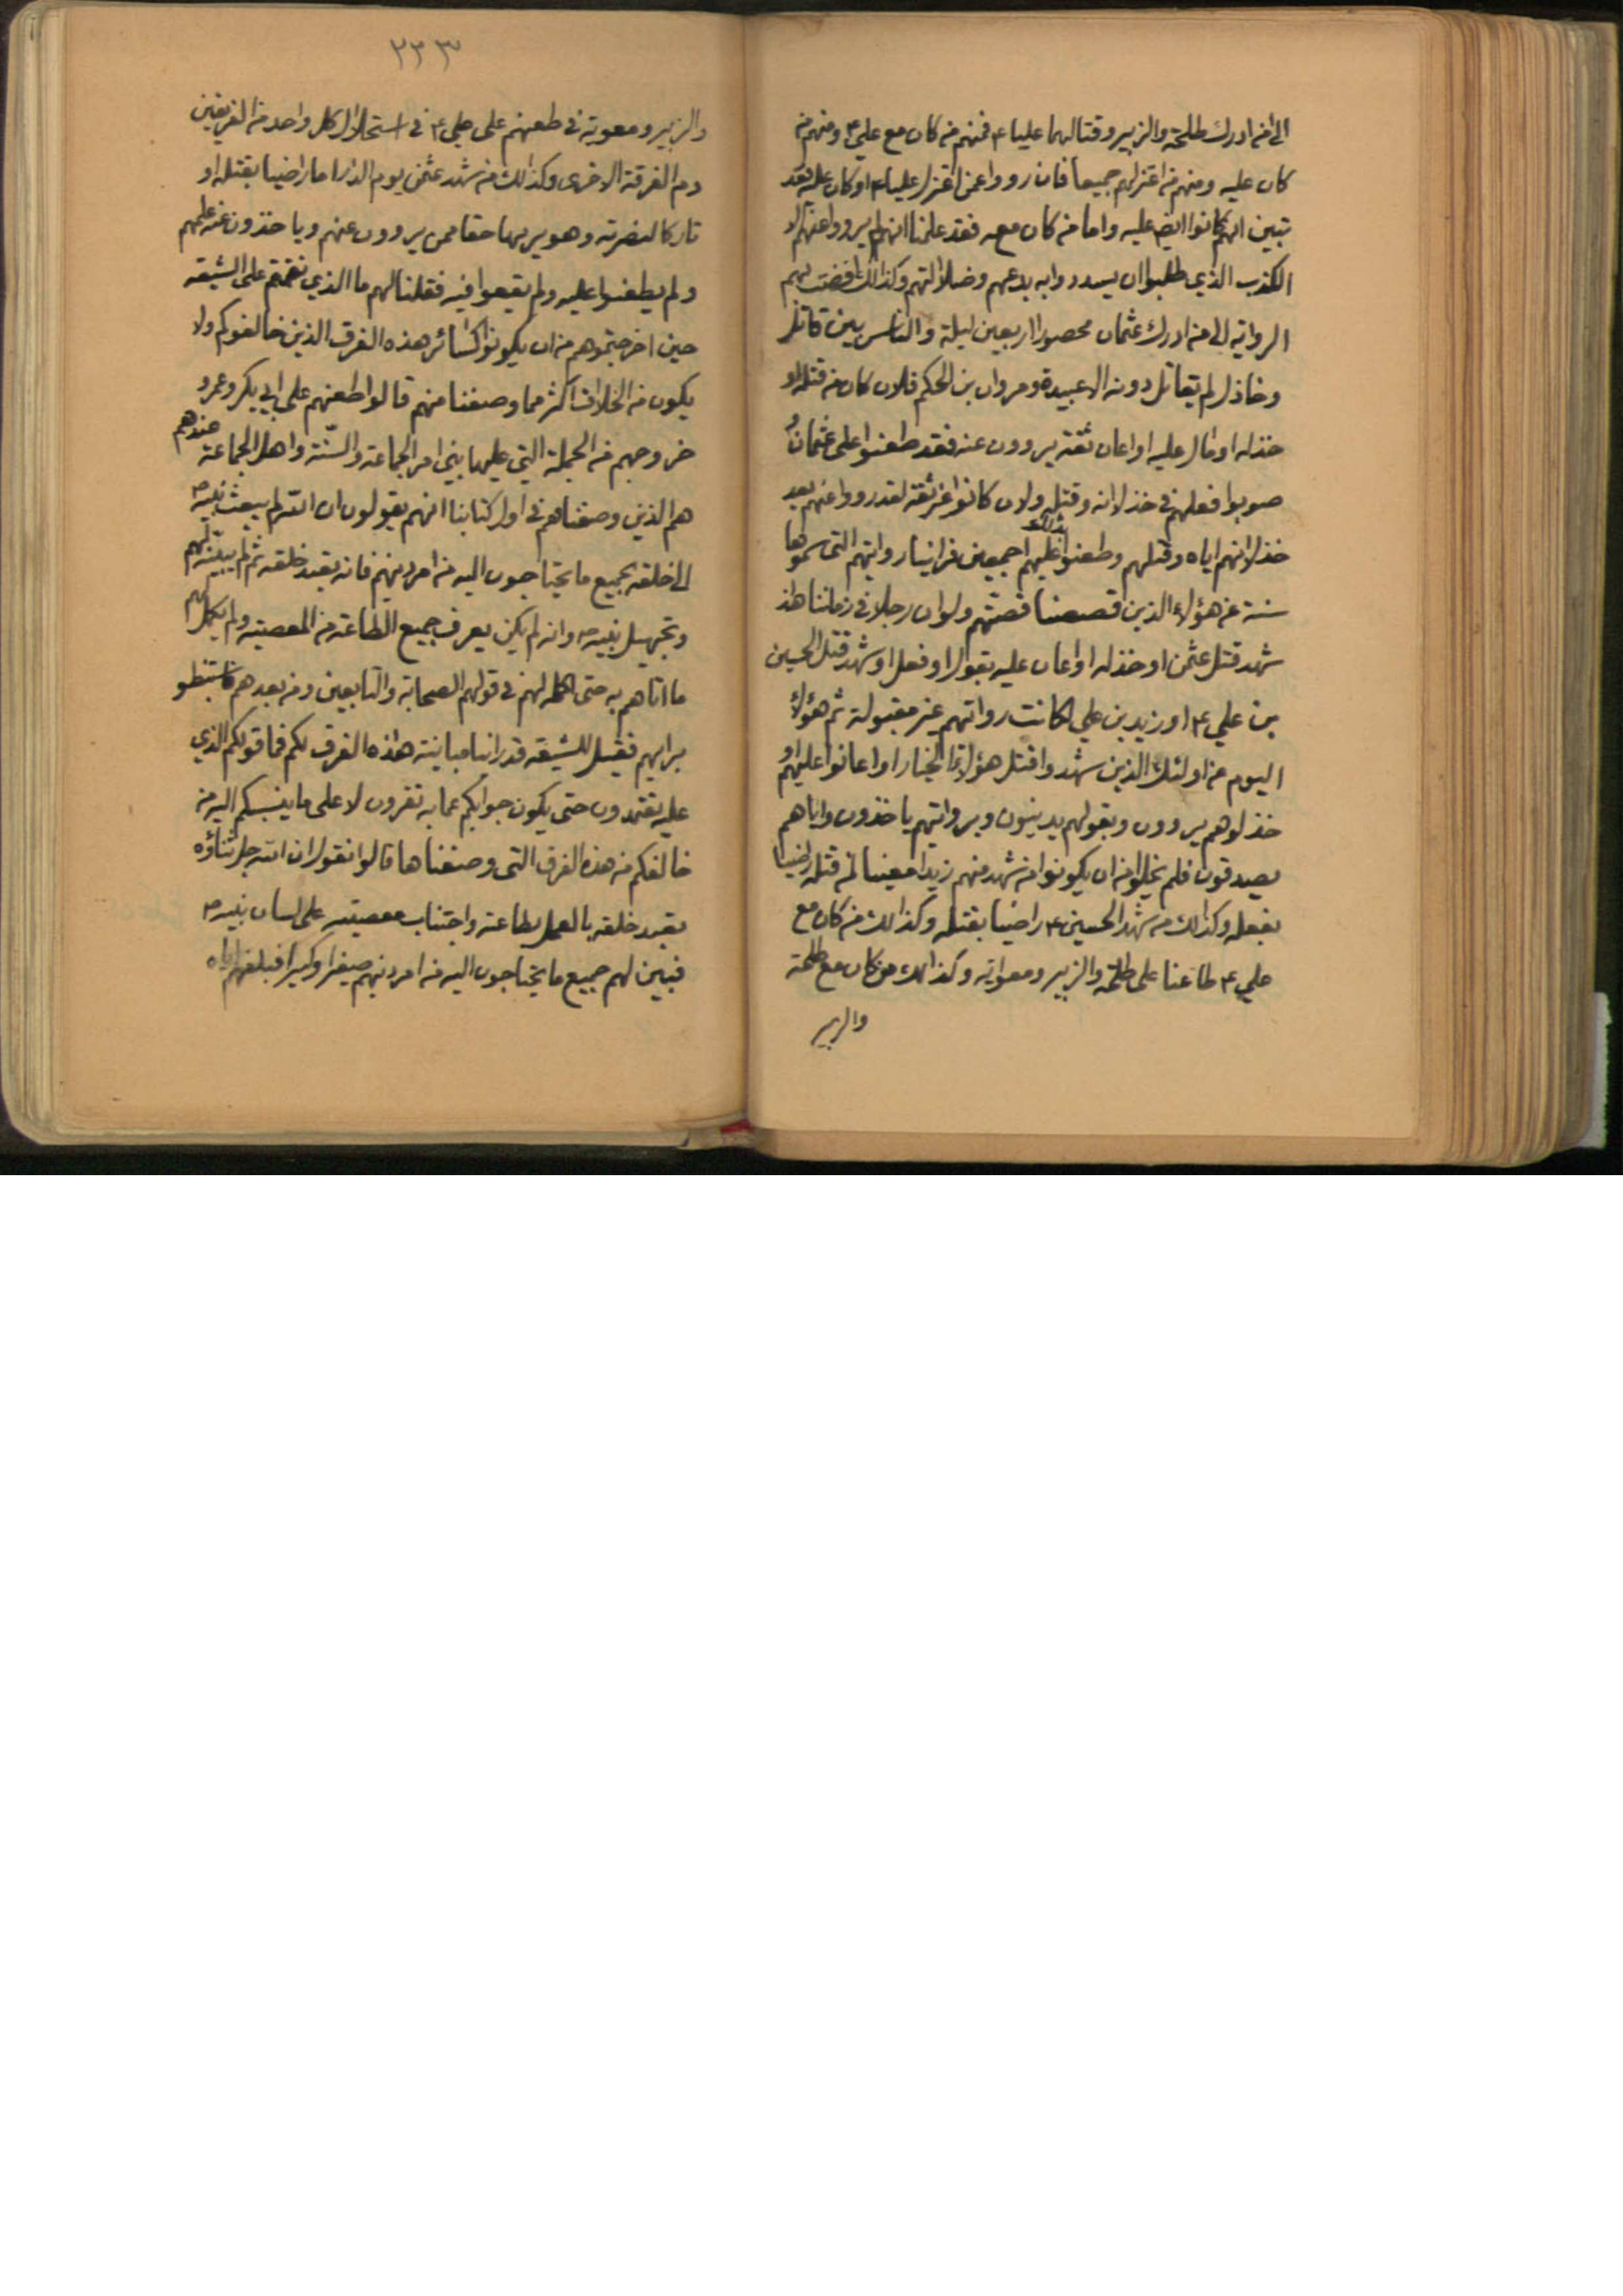 الى من ادرك طلحة والزبير وقتالهما عليا ٤ فمنهم من كان مع علي ٤ ومنهم من
كان عليه ومنهم من اعتزلهم جميعا فان رووا عمن اعتزل عليا ٤ او كان عليه فقد
تبين انهم كانوا ايضا عليه واما من كان معه فقد علمنا انهم لم يرووا عنهم الا
الكذب الذي طلبوا ان يسددوا به بدعهم وضلالتهم وكذلك افضت بهم
الرواية الى من ادرك عثمان محصورا اربعين ليلة والناس بين قاتل
وخاذل لم يقاتل دونه الا عبيده ومروان بن الحكم فلان كان من قتله او
خذله او مال عليه او اعان ثقة يروون عنه فقد طعنوا على عثمان و
صوبوا فعلهم في خذلانه وقتله ولان كانوا غير ثقة لقد رووا عنهم بعد
خذلانهم اياه وقتلهم وطعنوا بذلك عليهم اجمعين فراينا روايتهم التي سموها
سنة عن هؤلاء الذين قصصنا قصتهم ولو ان رجلا في زماننا هذا
شهد قتل عثمن او خذله او اعان عليه بقول او فعل او شهد قتل الحسين
بن علي ٤ او زيد بن علي لكانت رواتهم غير مقبولة ثم هؤلاء
اليوم عن اولئك الذين شهدوا قتل هؤلاء الخيار او اعانوا عليهم او
خذلوهم يروون وبقولهم يدينون وبرواتهم ياخذون واياهم
يصدقون فلم يخلوا من ان يكونوا من شهد منهم زيدا معينا لمن قتله راضيا
بفعله وكذلك من شهد الحسين ٤ راضيا بقتله وكذلك من كان مع
علي ٤ طاعنا على طلحة والزبير ومعوية وكذلك من كان مع طلحة
والزبير
٢٣٣
والزبير ومعوية في طعنهم على علي ٤ في استحلال كل واحد من الفريقين
دم الفرقة الاخرى وكذلك من شهد عثمن يوم الدار اما راضيا بقتله او
تاركا لنصرته وهو يريها حقا ممن يروون عنهم وياخذون عنه علمهم
ولم يطعنوا عليه ولم يقعوا فيه فقلنا لهم ما الذي نقمتم على الشيعة
حين اخرجتموهم من ان يكونوا كسائر هذه الفرق الذين خالفوكم ولا
يكون من الخلاف اكثر مما وصفنا منهم قالوا طعنهم على ابي بكر وعمر و
خروجهم من الجملة التي عليها بني امر الجماعة والسنة واهل الجماعة عندهم
هم الذين وصفناهم في اول كتابنا انهم يقولون ان الله لم يبعث نبيه ص
الى خلقه بجميع ما يحتاجون اليه من امر دينهم فانه يعبد خلقه ثم لم يبينه لهم
وتجهيل نبيه ص وانه لم يكن يعرف جميع الطاعة من المعصية ولم يكمل لهم
ما اتاهم به حتى اكمله لهم في قولهم الصحابة والتابعين ومن بعدهم فاستنبطو
برايهم فقيل للشيعة قد راينا مباينة هذه الفرق لكم فما قولكم الذي
عليه تعتمدون حتى يكون جوابكم عما به تقرون لا على ما ينسبكم اليه من
خالفكم من هذه الفرق التي وصفناها قالوا نقول ان الله جل ثناؤه
يعبد خلقه بالعمل بطاعته واجتناب معصيته على لسان نبيه ص
فبين لهم جميع ما يحتاجون اليه من امر دينهم صغيرا وكبيرا فبلغهم اياه